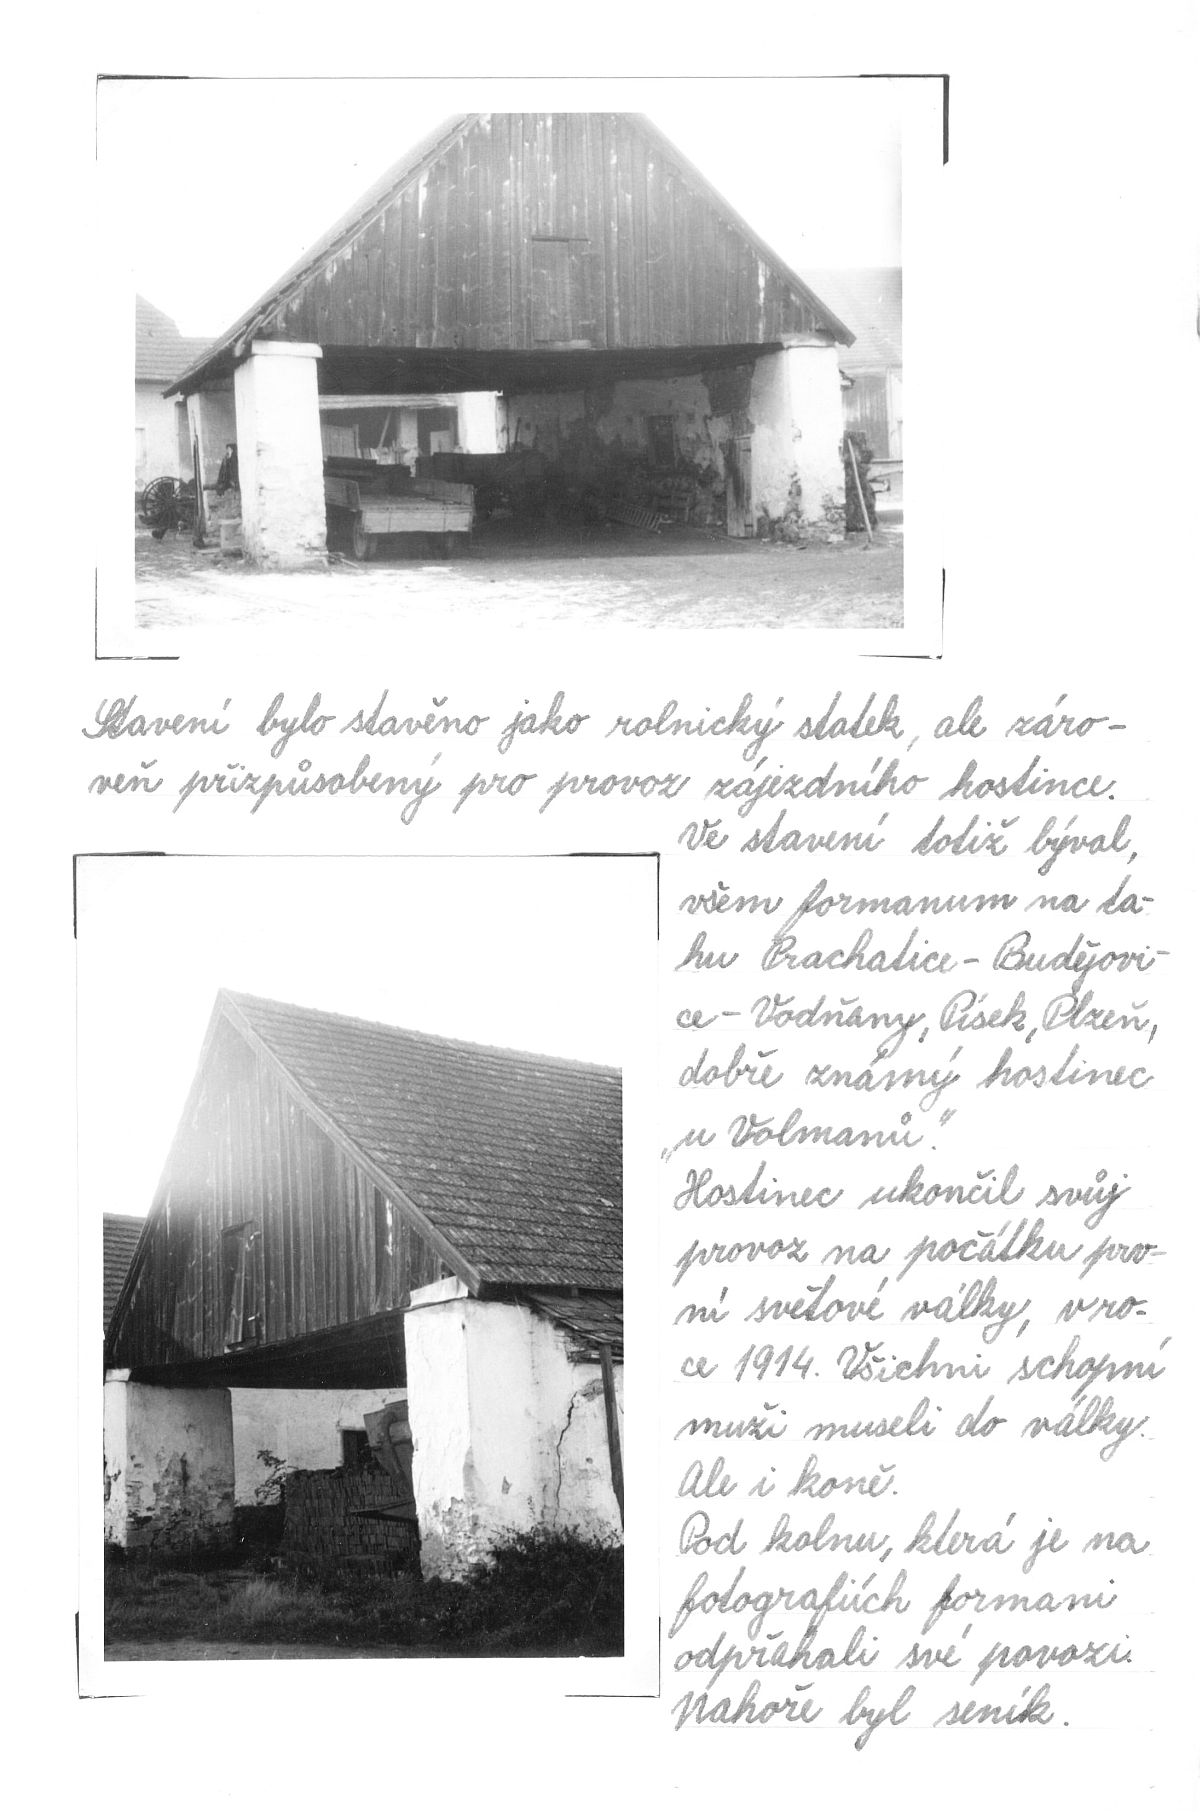 Stavení bylo stavěno jako rolnický statek, ale záro-
veň přizpůsobený pro provoz zájezdního hostince.
Ve stavení totiž býval,
všem formanum na ta-
hu Prachatice - Budějovi-
ce - Vodňany, Písek, Plzeň,
dobře známý hostinec
„u Volmanů."
Hostinec ukončil svůj
provoz na počátku prv-
ní světové války, v ro-
ce 1914. Všichni schopní
muži museli do války.
Ale i koně.
Pod kolnu, která je na
fotografiích formani
odpřáhali své povozi.
Nahoře byl seník.